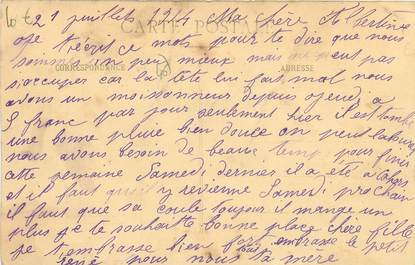 le 21 juillets 1914 Ma chère Albertine
je técrit ce mots pour te dire que nous
sommes un peu mieux mais peut pas
s'occuper car la tête lui fait mal nous
avons un moisonneur depuis
5 franc par jour seulement hier il est tombe
une bonne pluie bien douce on peut labourer
nous avons besoin de beaux temp pour finir
cette semaine Samedi dernier il a été a
et il faut qu'il y revienne Samedi prochain
il faut que sa coule toujour il mange un
plus je te souhaitte bonne place chère fille
je t'embrasse bien fort embrasse le petit
rené pour nous ta mere
CARTE POSTALE
CORRESPONDANCE
ADRESSE